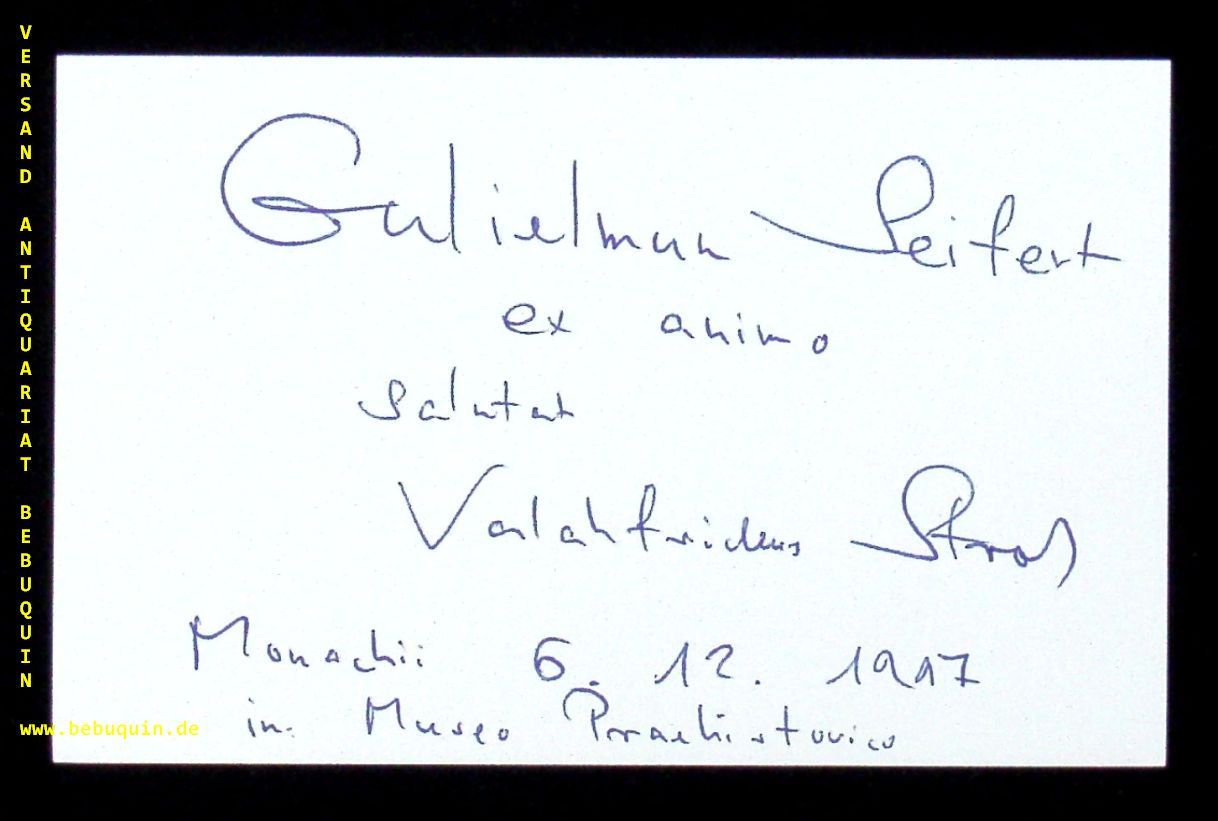 VERSAND ANTIQUARIAT BEBUQUIN
www.bebuquin.de
Gulielmum Seifert
ex animo
salutat
Valahfridus Stroh
Monachii 6. 12. 1997
in Museo Praehistorico